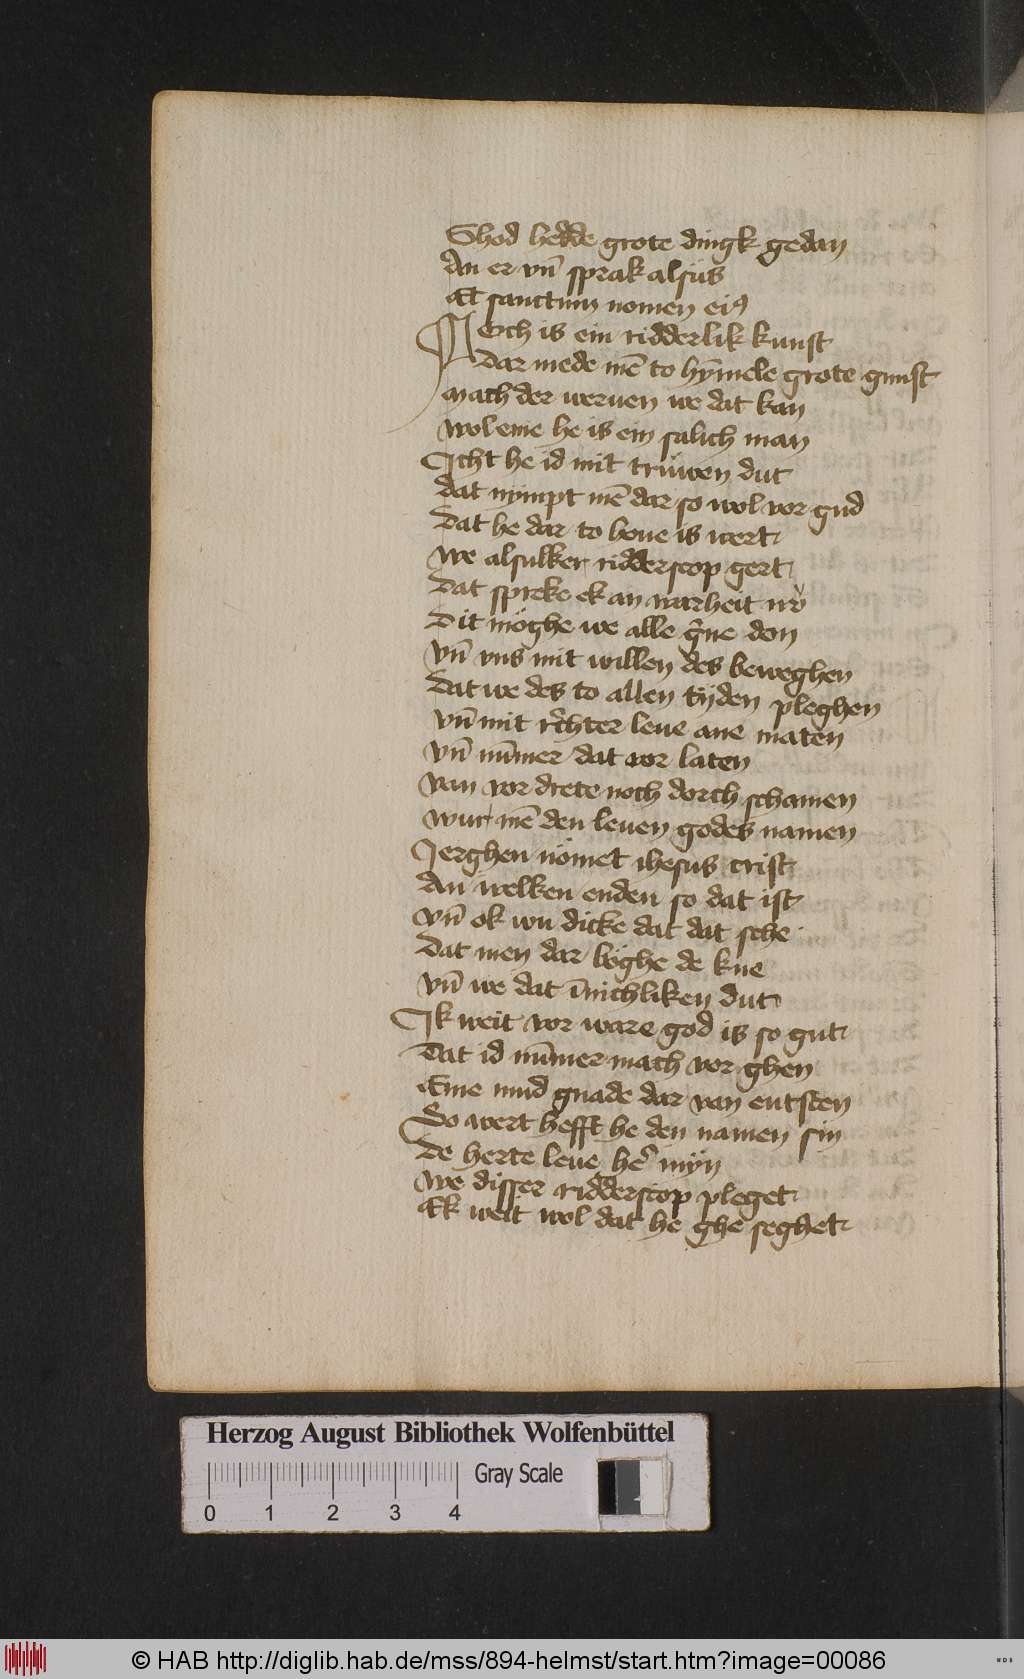 Ghod hedde grote dingk gedan
An er vn̄ sprak alsüs
Et sanctum nomen eiꝯ
Noch is ein ridderlik kunst
Dar mede mē to hÿmele grote gunst
Mach der weruen we dat kan
Wol eme he is ein salich man
Icht he id mit trüwen dut
Dat nÿmpt mē dar so wol vor gud
Dat he dar to houe is wert
We alsulker ridderscop gert
Dat spreke ek an warheit
Dit möghe we alle gͤne don
Vn̄ vns mit willen des beweghen
Dat we des to allen tÿden pleghen
Vn̄ mit rͤchter leue ane maten
Vn̄ nūmer dat vor laten
Van vor drete noch dorch schamen
Wur mē den leuen godes namen
Ierghen nömet ihesus crist
An welken enden so dat ist
Vn̄ ok wu dicke dat dat sche
Dat men dar böghe de kne
Vn̄ we dat īnichliken dut
Ik weit vor ware god is so gut
Dat id nūmer mach vor ghen
Eme nund gnade dar van entsten
So wert hefft he den namen sin
De herte leue hēr mÿn
We disser ridderscop pleget
Ek weit wol dat he ghe seghet
Herzog August Bibliothek Wolfenbüttel
Gray Scale
0 1 2 3 4
© HAB http://diglib.hab.de/mss/894-helmst/start.htm?image=00086